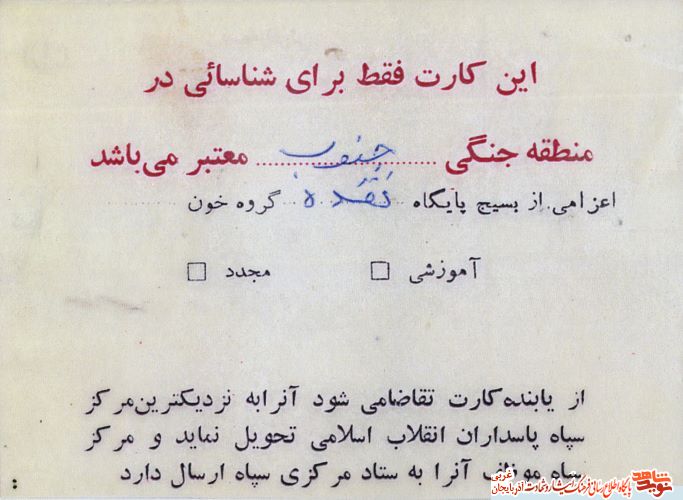 این کارت فقط برای شناسائی در
منطقه جنگی جنوب معتبر می‌باشد
اعزامی از بسیج پایگاه نقده گروه خون
آموزشی □ مجدد □
از یابنده کارت تقاضامی شود آنرابه نزدیکترین مرکز
سپاه پاسداران انقلاب اسلامی تحویل نماید و مرکز
سپاه موظف آنرا به ستاد مرکزی سپاه ارسال دارد
نوید شاهد
پایگاه اطلاع رسانی فرهنگ ایثار و شهادت آذربایجان غربی